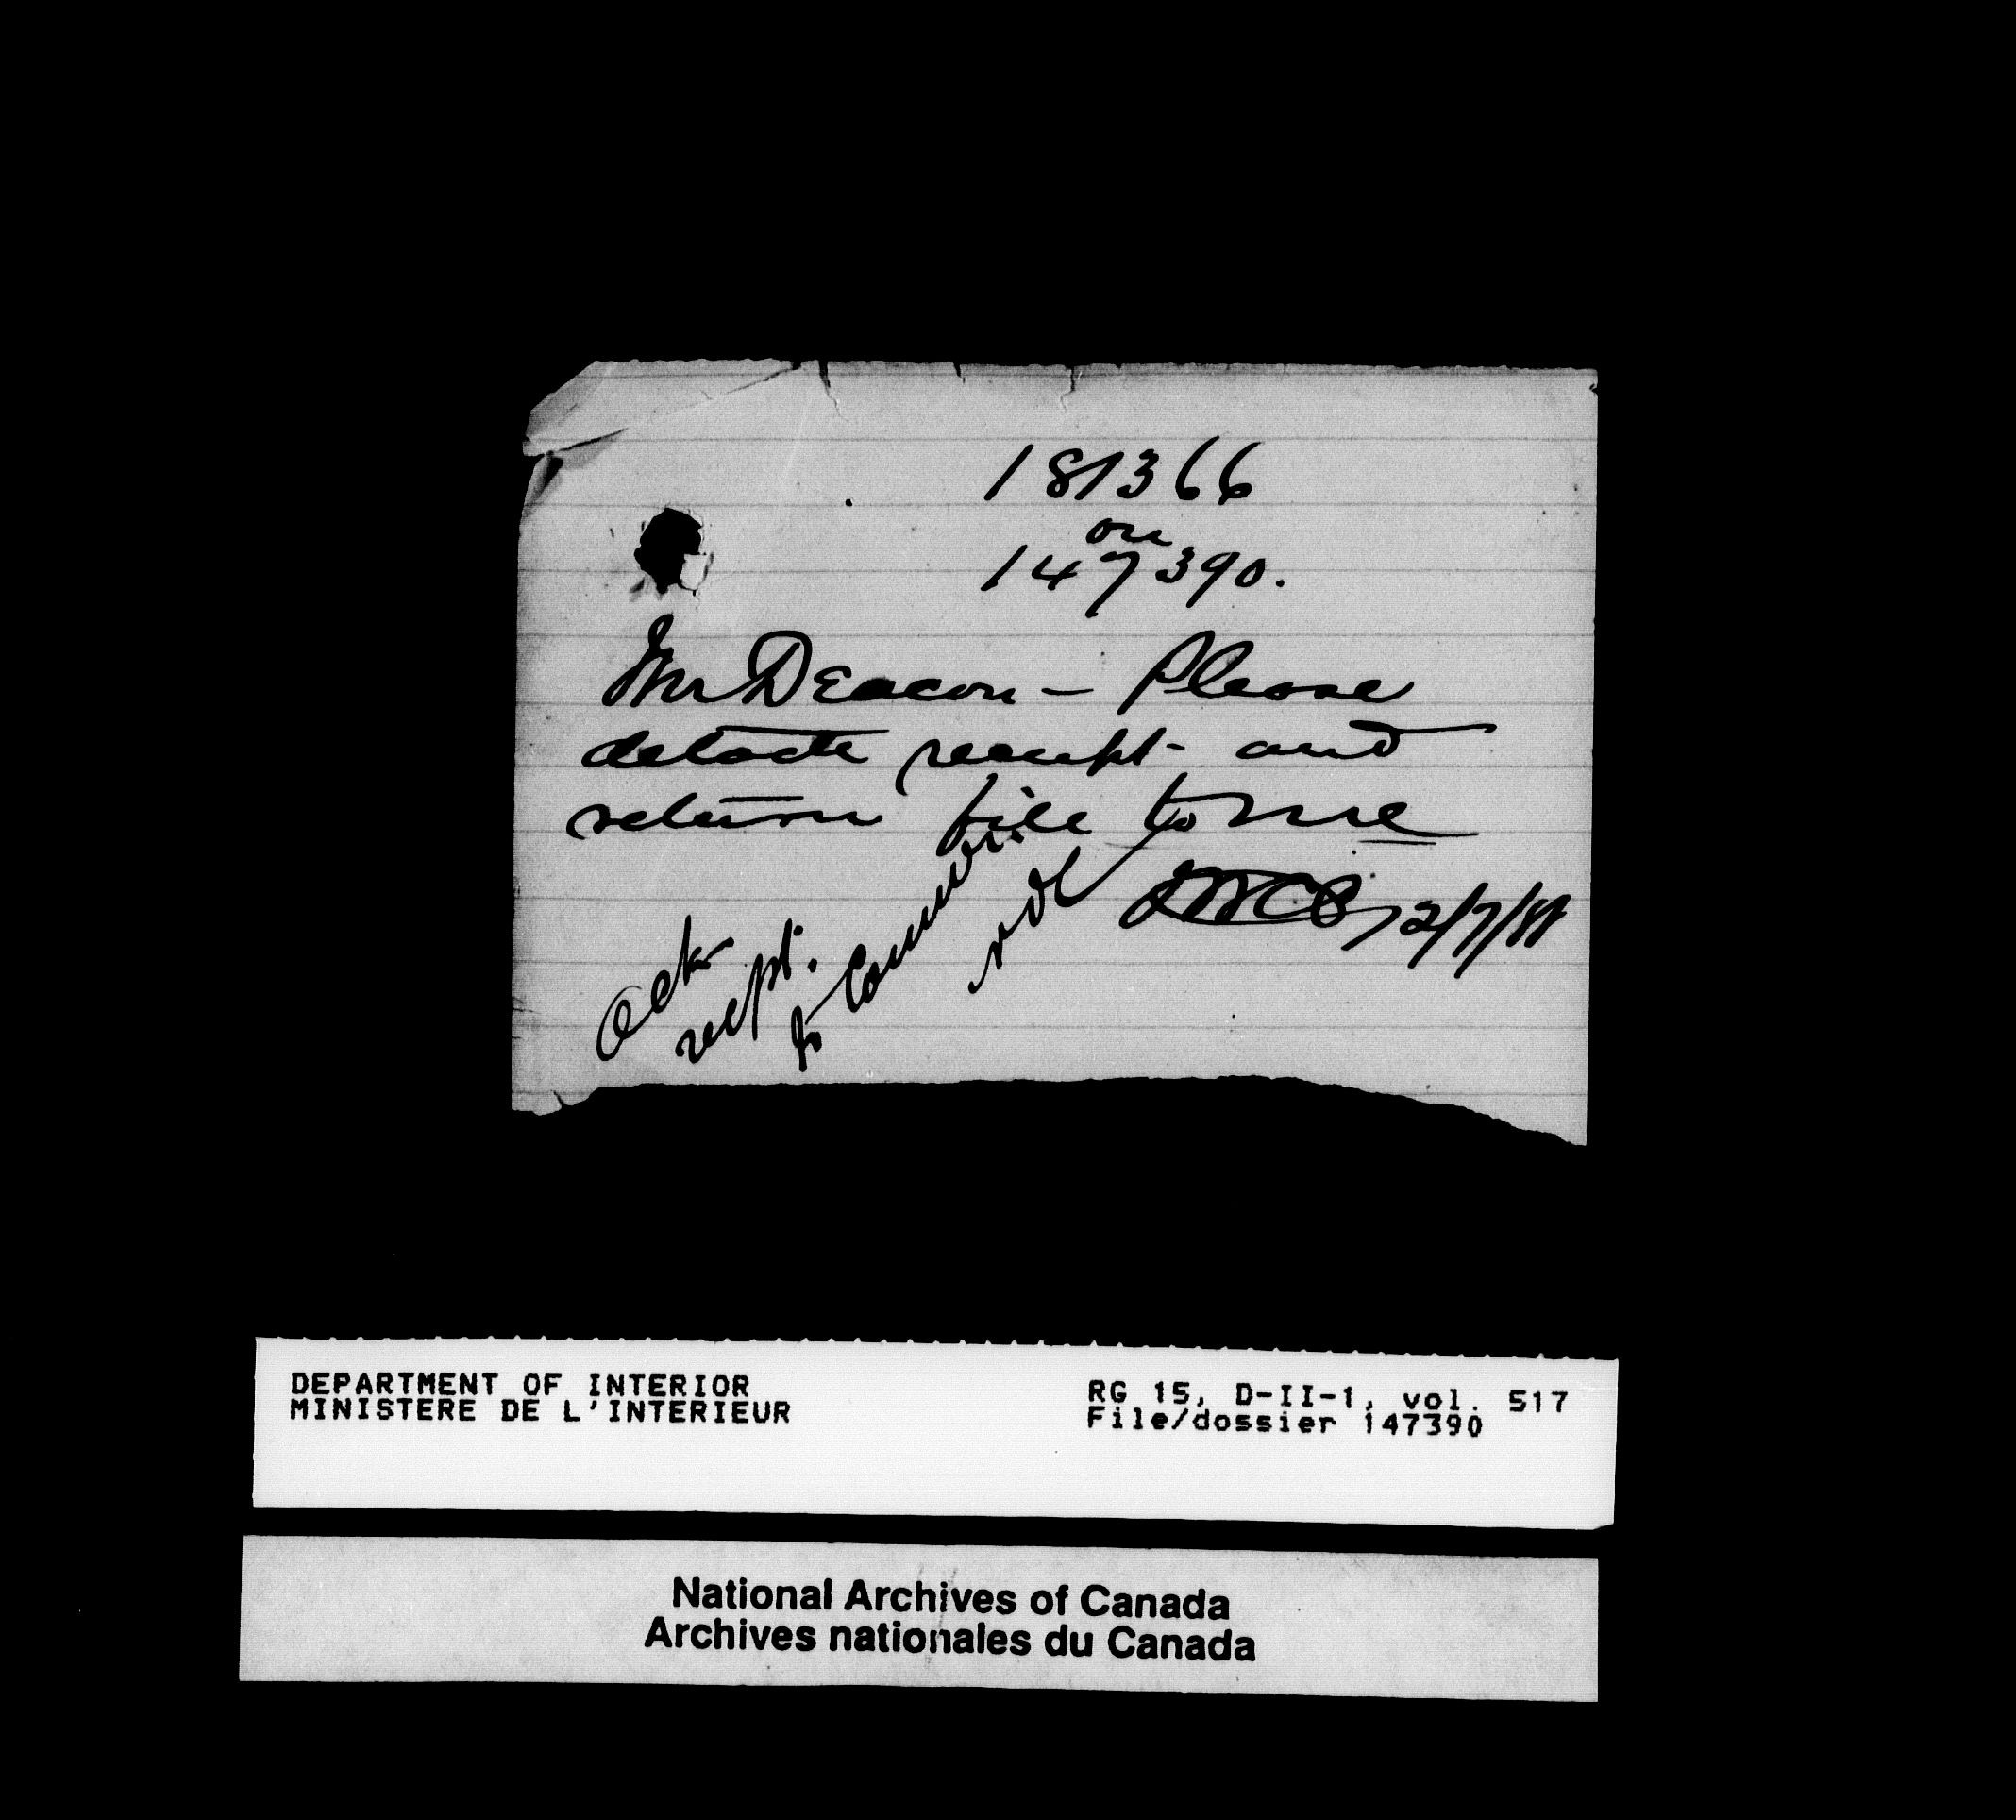 181366
on
147390.
Mr Deacon - Please
detach receipt and
return file to me
12/7/88
Ack
recpt.
to Commr.
DEPARTMENT OF INTERIOR
MINISTERE DE L'INTERIEUR
RG 15, D-II-1, vol. 517
File/dossier 147390
National Archives of Canada
Archives nationales du Canada